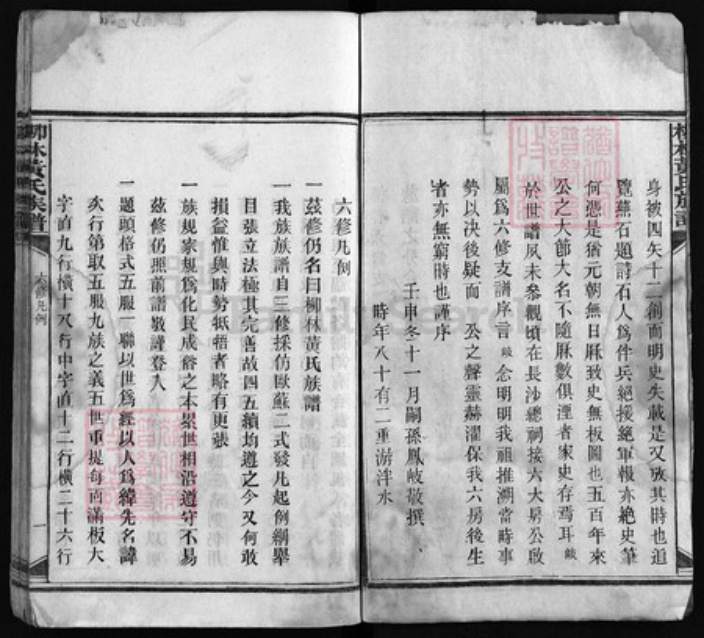 身被四矢十二創而明史失載是又攷其時也道
覽蕪石題詩石人爲伴兵絕援絕軍報亦絕史筆
何憑是猶元朝無日厤致史無板圖也五百年來
公之大節大名不隨厤數俱湮者家史存焉耳
於世譜夙未參觀頃在長沙總祠接六大房公啟
屬爲六修支譜序言 念明明我祖推溯當時事
勢以決後疑而 公之聲靈赫濯保我六房後生
者亦無窮時也謹序
壬申冬十一月嗣孫鳳岐敬撰
時年八十有二重游泮水
柳林黃氏族譜
六修凡例
一茲修仍名曰柳林黃氏族譜
一我族族譜自三修採仿歐蘇二式發凡起例綱舉
目張立法極其完善故四五續均遵之今又何敢
損益惟與時勢牴牾者略有更張
一族規家規爲化民成俗之本累世相沿遵守不易
茲修仍照前譜敬謹登入
一題頭格式五服一聯以世爲經以人爲緯先名諱
次行第取五服九族之義五世重提每面滿板大
字直九行橫十八行中字直十二行橫二十六行
柳林黃氏族譜
六修凡例
一